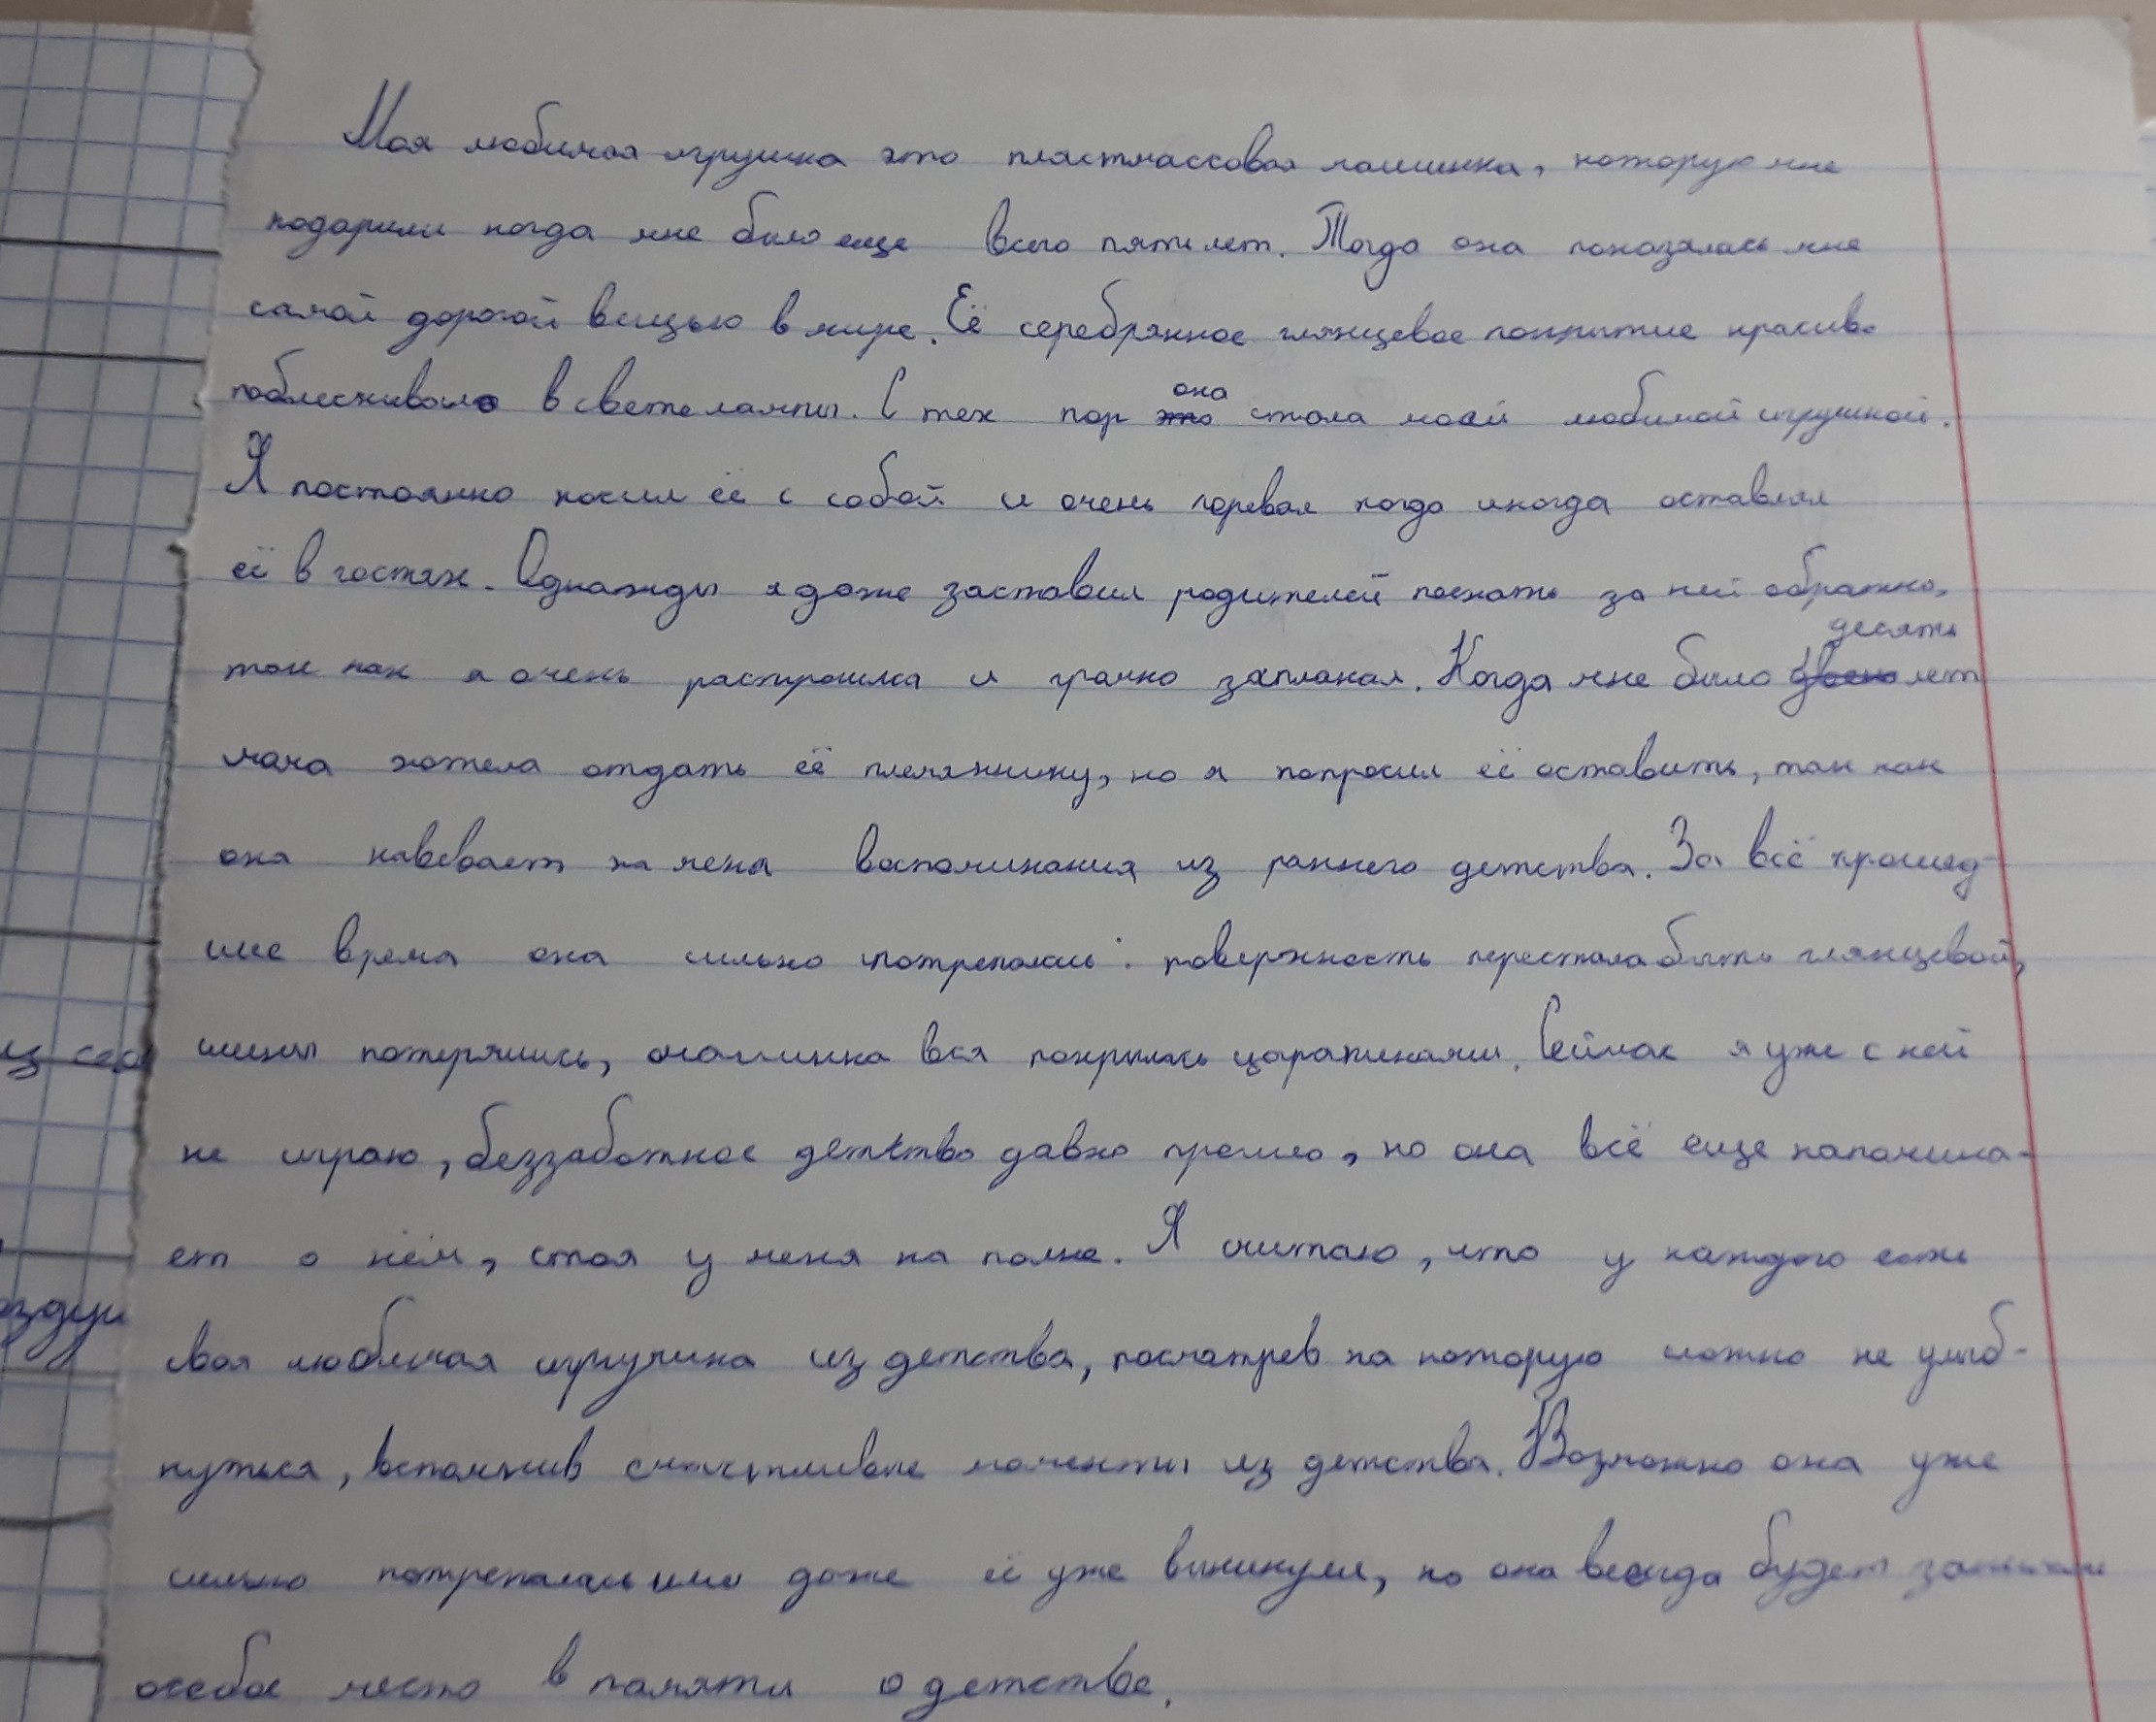 Моя любимая игрушка это пластмассовая машинка, которую мне
подарили когда мне было еще всего пять лет. Тогда она показалась мне
самой дорогой вещью в мире. Её серебрянное глянцевое покрытие красиво
поблескивало в свете лампы. С тех пор она стала моей любимой игрушкой.
Я постоянно носил её с собой и очень горевал когда иногда оставлял
её в гостях. Однажды я даже заставил родителей поехать за ней обратно,
так как я очень расстроился и громко заплакал. Когда мне было десять лет
мама хотела отдать её племяннику, но я попросил её оставить, так как
она навевает на меня воспоминания из раннего детства. За всё прошед-
шее время она сильно потрепалась: поверхность перестала быть глянцевой,
из сес шины потерялись, машинка вся покрылась царапинами. Сейчас я уже с ней
не играю, беззаботное детство давно прошло, но она всё еще напомина-
ет о нём, стоя у меня на полке. Я считаю, что у каждого есть
оздуш своя любимая игрушка из детства, посмотрев на которую можно не улыб-
нуться, вспомнив счастливые моменты из детства. Возможно она уже
сильно потрепалась или даже её уже выкинули, но она всегда будет занимать
особое место в памяти о детстве.